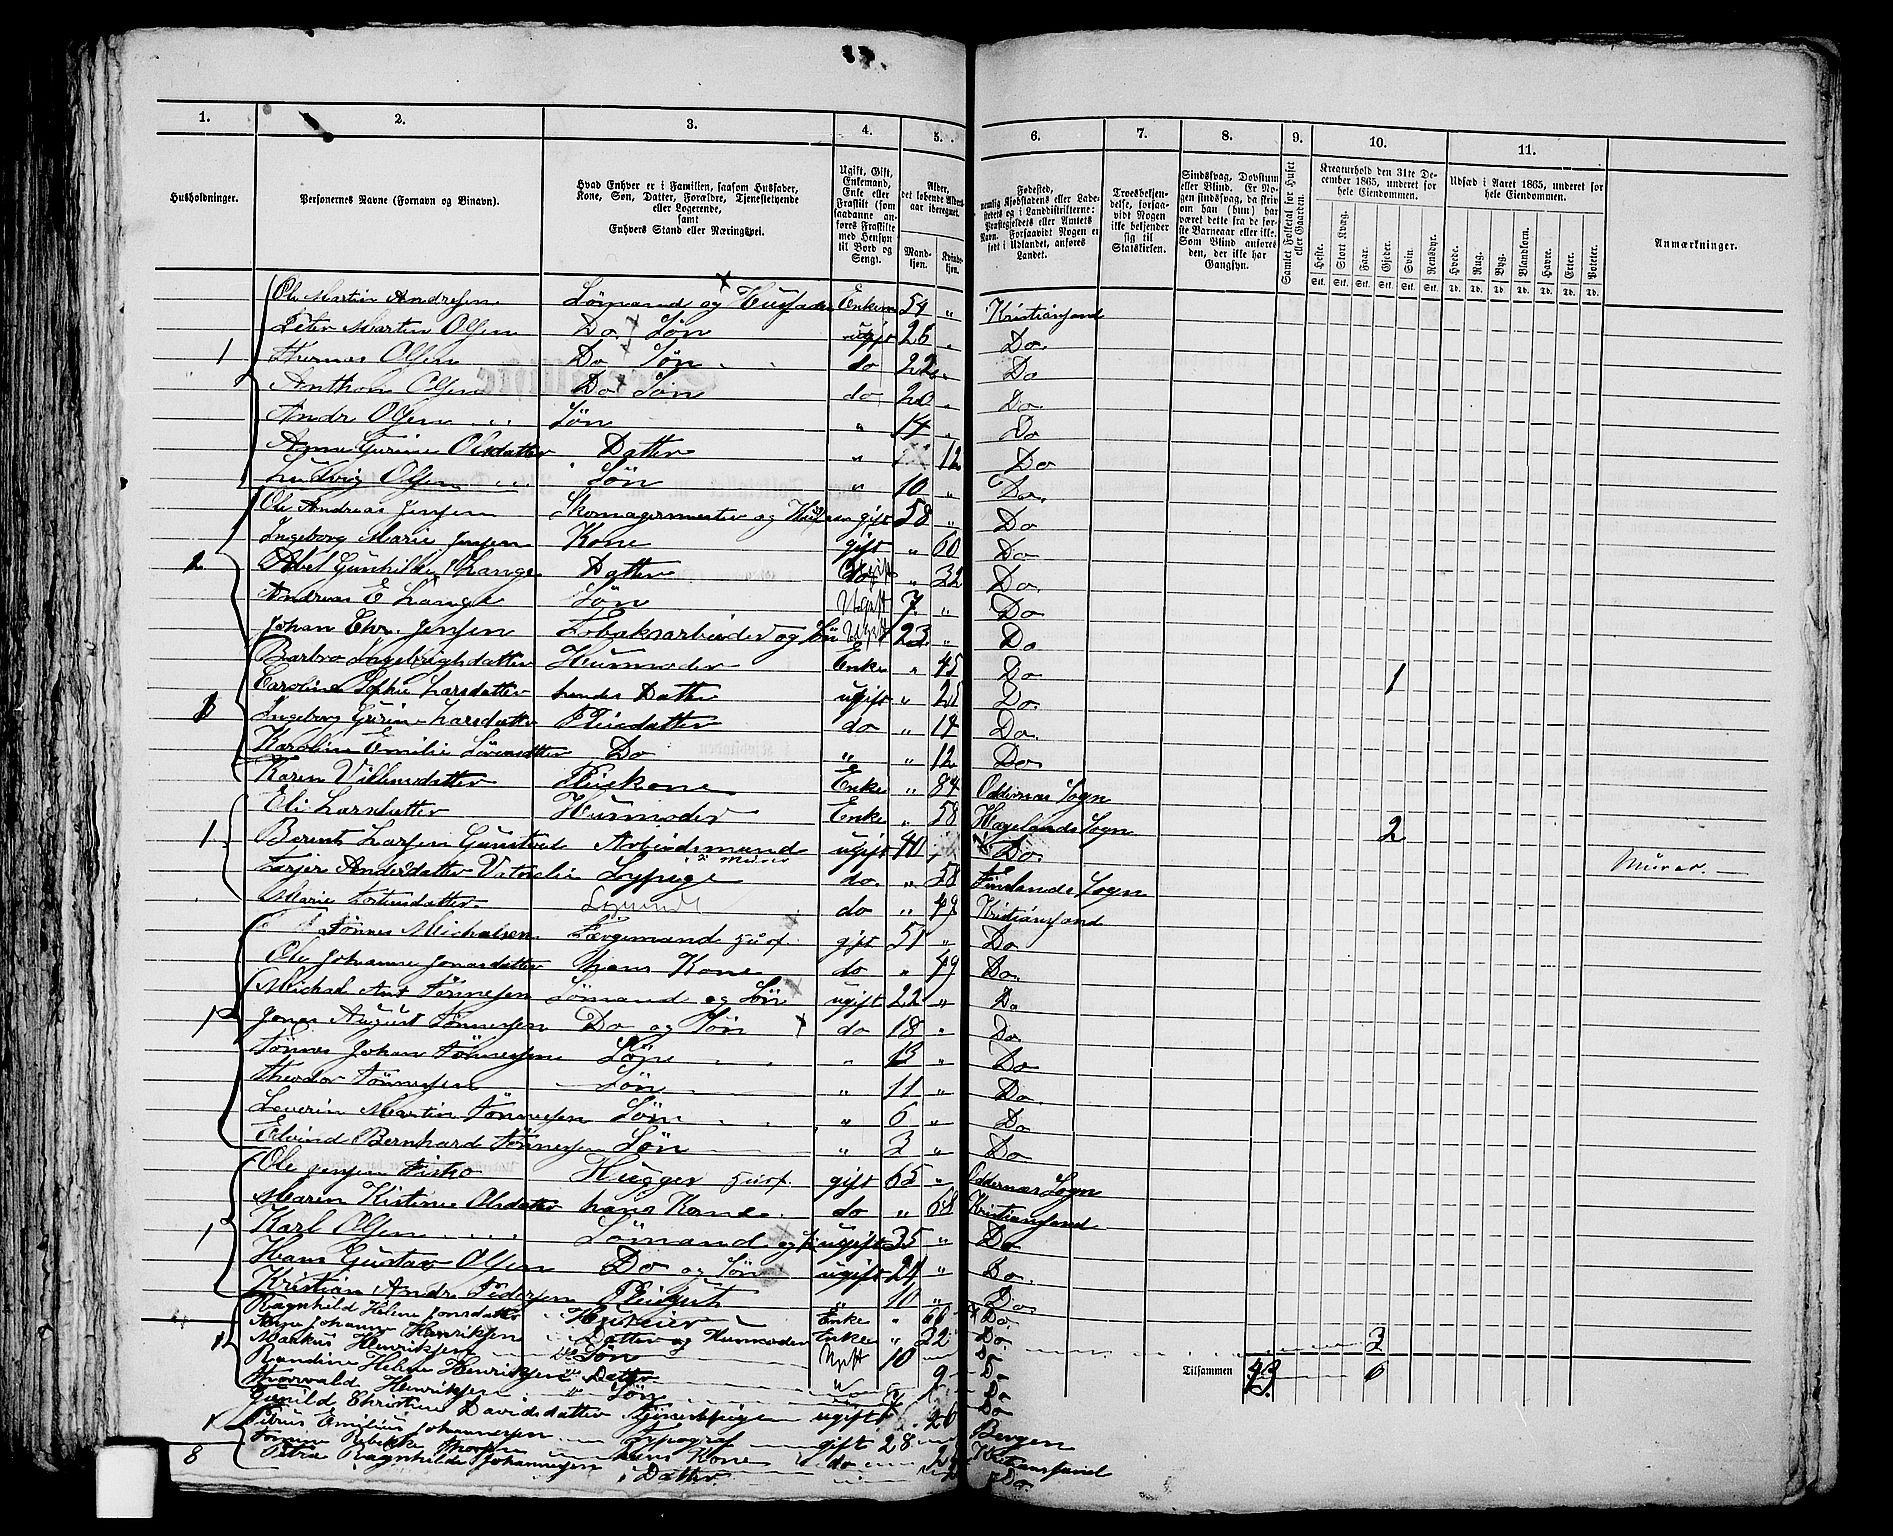 1. 2. 3. 4. 5. 6. 7. 8. 9. 10. 11.
Husholdninger.
Personernes Navne (Fornavn og Binavn).
Hvad Enhver er i Familien, saasom Husfader, Kone, Søn, Datter, Forældre, Tjenestetyende eller Logerende, samt Enhvers Stand eller Næringsvei.
Ugift, Gift, Enkemand, Enke eller Fraskilt (som saadanne anføres Fraskilte med Hensyn til Bord og Seng).
Alder, det løbende Alders-aar iberegnet.
Mandkjøn. Kvindekjøn.
Fødested, nemlig Kjøbstadens eller Ladestedets og i Landdistrikterne: Præstegjeldets eller Amtets Navn. Forsaavidt Nogen er født i Udlandet, anføres Landet.
Troesbekjendelse, forsaavidt Nogen ikke bekjender sig til Statskirken.
Sindssvag, Døvstum eller Blind. Er Nogen sindssvag, da skrives om han (hun) har været dette fra de første Barneaar eller ikke. Som Blind anføres den, der ikke har Gangsyn.
Samlet Folketal for Huset eller Gaarden.
Kreaturhold den 31te December 1865, underet for hele Eiendommen.
Heste. Stort Kvæg. Faar. Gjeder. Svin. Rensdyr.
Udsæd i Aaret 1865, underet for hele Eiendommen.
Hvede. Rug. Byg. Blandkorn. Havre. Erter. Poteter.
Anmærkninger.
Stk. Stk. Stk. Stk. Stk. Stk. Td. Td. Td. Td. Td. Td. Td.
Ole Martin Andresen Sømand og Husfader Enkem 54 " Kristiansand
Peter Martin Olsen Do Søn ugift 26 " Do.
1 Thomas Olsen Do Søn do 22 " Do
Anthon Olsen Do Søn do 20 " Do.
Andr Olsen Søn " 14 " Do
Anne Gurine Olsdatter Datter " 12 Do
Ludvig Olsen Søn " 10 " Do.
Ole Andreas Jensen Skomagermester og gift 58 " Do
Ingeborg Marie Jensen Kone gift " 60 Do
Abel Gunhilde Lange Datter " 32 Do
Andreas E Lange Søn Ugift 7 " Do
Johan Chr. Jensen Tobaksarbeider og Søn Ugift 23 " Do
Barbro Ingebrigtsdatter Huusmoder Enke " 45 Do 1
Caroline Sophie Larsdatter hendes Datter ugift " 25 Do
Ingeborg Gurine Larsdatter Pleiedatter do " 14 Do.
Karoline Emilie Sørensdatter Do " " 12 Do
Karen Villumsdatter Pleiekone Enke " 84 Oddernæs Sogn
Eli Larsdatter Huusmoder Enke " 58 Hægelands Sogn 2
1 Berent Larsen Arbeidsmand ugift 40 " Do
Murer
Andersdatter do. " 58 Finlands Sogn Murer.
Marie do " 49 Kristiansand
Tønnes Michalsen gift 51 " Do
Ele Johanne Jonasdatter hans Kone do " 49 Do.
Michal Ant Tønnesen Sømand og Søn ugift 22 " Do
1 Jonas August Tønnesen Do og Søn do 18 " Do
Tønnes Johan Tønnesen Søn " 13 " Do
Theodor Tønnesen Søn " 11 " Do.
Severin Martin Tønnesen Søn " 6 " Do
Edvind Bernhard Tønnesen Søn " 3 " Do
Ole Jensen Fisko Hugger gift 65 " Oddernæs Sogn
Maren Kistine Olsdatter hans Kone do " 68 Kristiansand
1 Karl Olsen Sømand og ugift 35 " Do
Hans Gustav Olsen Do og Søn ugift 24 " Do.
Kristian Andr Pedersen " 10 " Do
Ragnhild Heline Jonsdatter Huseier Enke " 60 Do.
Ane Johanne Henriksen Datter og Huusmoder Enke " 32 Do 3
Markus Henriksen Søn Ugift 10 Do
Randine Helene Henriksen Datter " 9 Do
Thorvald Henriksen Søn Do
Tilsammen 43 6
Gunild Christine Davidsdatter Tjenestepige ugift 26 Do
Petrus Emilius Johannesen Typograf gift 28 Bergen
Rebekke hans Kone do Kristiansand
8 Petra Ragnhilde Johannesen Datter Do.